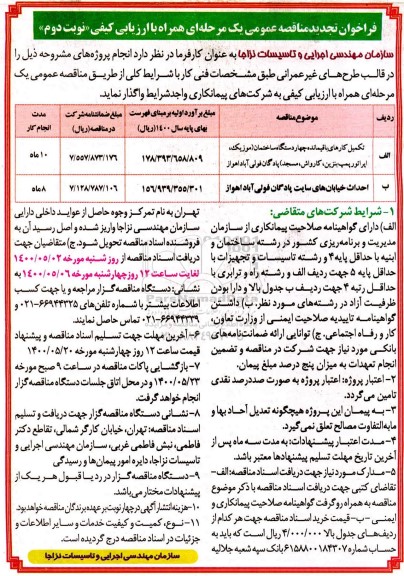 فراخوان تجدید مناقصه عمومی یک مرحله‌ای همراه با ارزیابی کیفی «نوبت دوم»
سازمان مهندسی اجرایی و تاسیسات نزاجا به عنوان کارفرما در نظر دارد انجام پروژه‌های مشروحه ذیل را
در قالب طرح‌های غیرعمرانی طبق مشخصات فنی کار با شرایط کلی از طریق مناقصه عمومی یک
مرحله‌ای همراه با ارزیابی کیفی به شرکت‌های پیمانکاری واجد شرایط واگذار نماید.
ردیف
موضوع مناقصه
مبلغ برآورد اولیه بر مبنای فهرست بهای پایه سال ۱۴۰۰ (ریال)
مبلغ ضمانتنامه شرکت در مناقصه (ریال)
مدت انجام کار
الف
تکمیل کارهای باقیمانده چهار دستگاه ساختمان (موزیک،
اپراتور پمپ بنزین، کارواش، مسجد) پادگان قولی آباد اهواز
۱۷۸/۳۹۳/۶۵۸/۸۰۹
۷/۵۵۷/۸۷۳/۱۷۶
۱۰ ماه
ب
احداث خیابان‌های سایت پادگان قولی آباد اهواز
۱۵۶/۹۳۹/۳۵۵/۳۰۱
۷/۱۲۸/۷۸۷/۱۰۶
۸ ماه
۱- شرایط شرکت‌های متقاضی:
الف) دارای گواهینامه صلاحیت پیمانکاری از سازمان
مدیریت و برنامه‌ریزی کشور در رشته ساختمان و
ابنیه با حداقل پایه ۴ و رشته تاسیسات و تجهیزات با
حداقل پایه ۵ جهت ردیف الف و رشته راه و ترابری با
حداقل رتبه ۴ جهت ردیف ب جدول بالا و دارا بودن
ظرفیت آزاد در رشته‌های مورد نظر. ب) داشتن
گواهینامه تاییدیه صلاحیت ایمنی از وزارت تعاون،
کار و رفاه اجتماعی. ج) توانایی ارائه ضمانت‌نامه‌های
بانکی مورد نیاز جهت شرکت در مناقصه و تضمین
انجام تعهدات به میزان پنج درصد مبلغ پیمان.
۲- اعتبار پروژه: اعتبار پروژه به صورت صددرصد نقدی
تامین می‌گردد.
۳- به پیمان این پروژه هیچگونه تعدیل آحاد بها و
مابه‌التفاوت مصالح تعلق نمی‌گیرد.
۴- مدت اعتبار پیشنهادات: به مدت سه ماه پس از
آخرین تاریخ مهلت تسلیم پیشنهادها معتبر باشد.
۵- مدارک مورد نیاز جهت دریافت اسناد مناقصه: الف-
تقاضای کتبی جهت دریافت اسناد مناقصه با ذکر موضوع
مناقصه به همراه رو گرفت گواهینامه صلاحیت پیمانکاری و
ایمنی - ب- قیمت خرید اسناد مناقصه جهت هر کدام از
ردیف‌های جدول بالا ۴/۰۰۰/۰۰۰ ریال است که باید به
حساب شماره ۶۱۵۸۸۰۰۱۸۴۳۰۷ بانک سپه شعبه جلالیه
تهران به نام تمرکز وجوه حاصل از عواید داخلی دارایی
سازمان مهندسی نزاجا واریز شده و اصل رسید آن به
فروشنده اسناد مناقصه تحویل شود. ج) متقاضیان جهت
دریافت اسناد مناقصه از روز شنبه مورخه ۱۴۰۰/۰۵/۰۲
لغایت ساعت ۱۲ روز چهارشنبه مورخه ۱۴۰۰/۰۵/۰۶ به
نشانی دستگاه مناقصه‌گزار مراجعه و یا جهت کسب
اطلاعات بیشتر با شماره تلفن‌های ۶۶۹۴۴۳۲۵-۰۲۱ و
۶۶۹۴۴۳۳۹-۰۲۱ تماس حاصل نمایند.
۶- آخرین مهلت جهت تسلیم اسناد مناقصه و پیشنهاد
قیمت ساعت ۱۲ روز چهارشنبه مورخه ۱۴۰۰/۰۵/۲۰
۷- بازگشایی پاکات مناقصه در ساعت ۹ صبح مورخه
۱۴۰۰/۰۵/۲۳ و در محل اتاق جلسات دستگاه مناقصه‌گزار
انجام خواهد گرفت.
۸- نشانی دستگاه مناقصه‌گزار جهت دریافت و تسلیم
اسناد مناقصه: تهران، خیابان کارگر شمالی، تقاطع دکتر
فاطمی، نبش فاطمی غربی، سازمان مهندسی اجرایی و
تاسیسات نزاجا، دایره امور پیمان‌ها و رسیدگی
۹- دستگاه مناقصه‌گزار در رد یا قبول هر یک از
پیشنهادات مختار می‌باشد.
۱۰- هزینه انتشار آگهی در چهار نوبت بر عهده برندگان مناقصه خواهد بود.
۱۱- نوع، کمیت و کیفیت خدمات و سایر اطلاعات و
جزئیات در اسناد مناقصه درج گردیده است.
سازمان مهندسی اجرایی و تاسیسات نزاجا